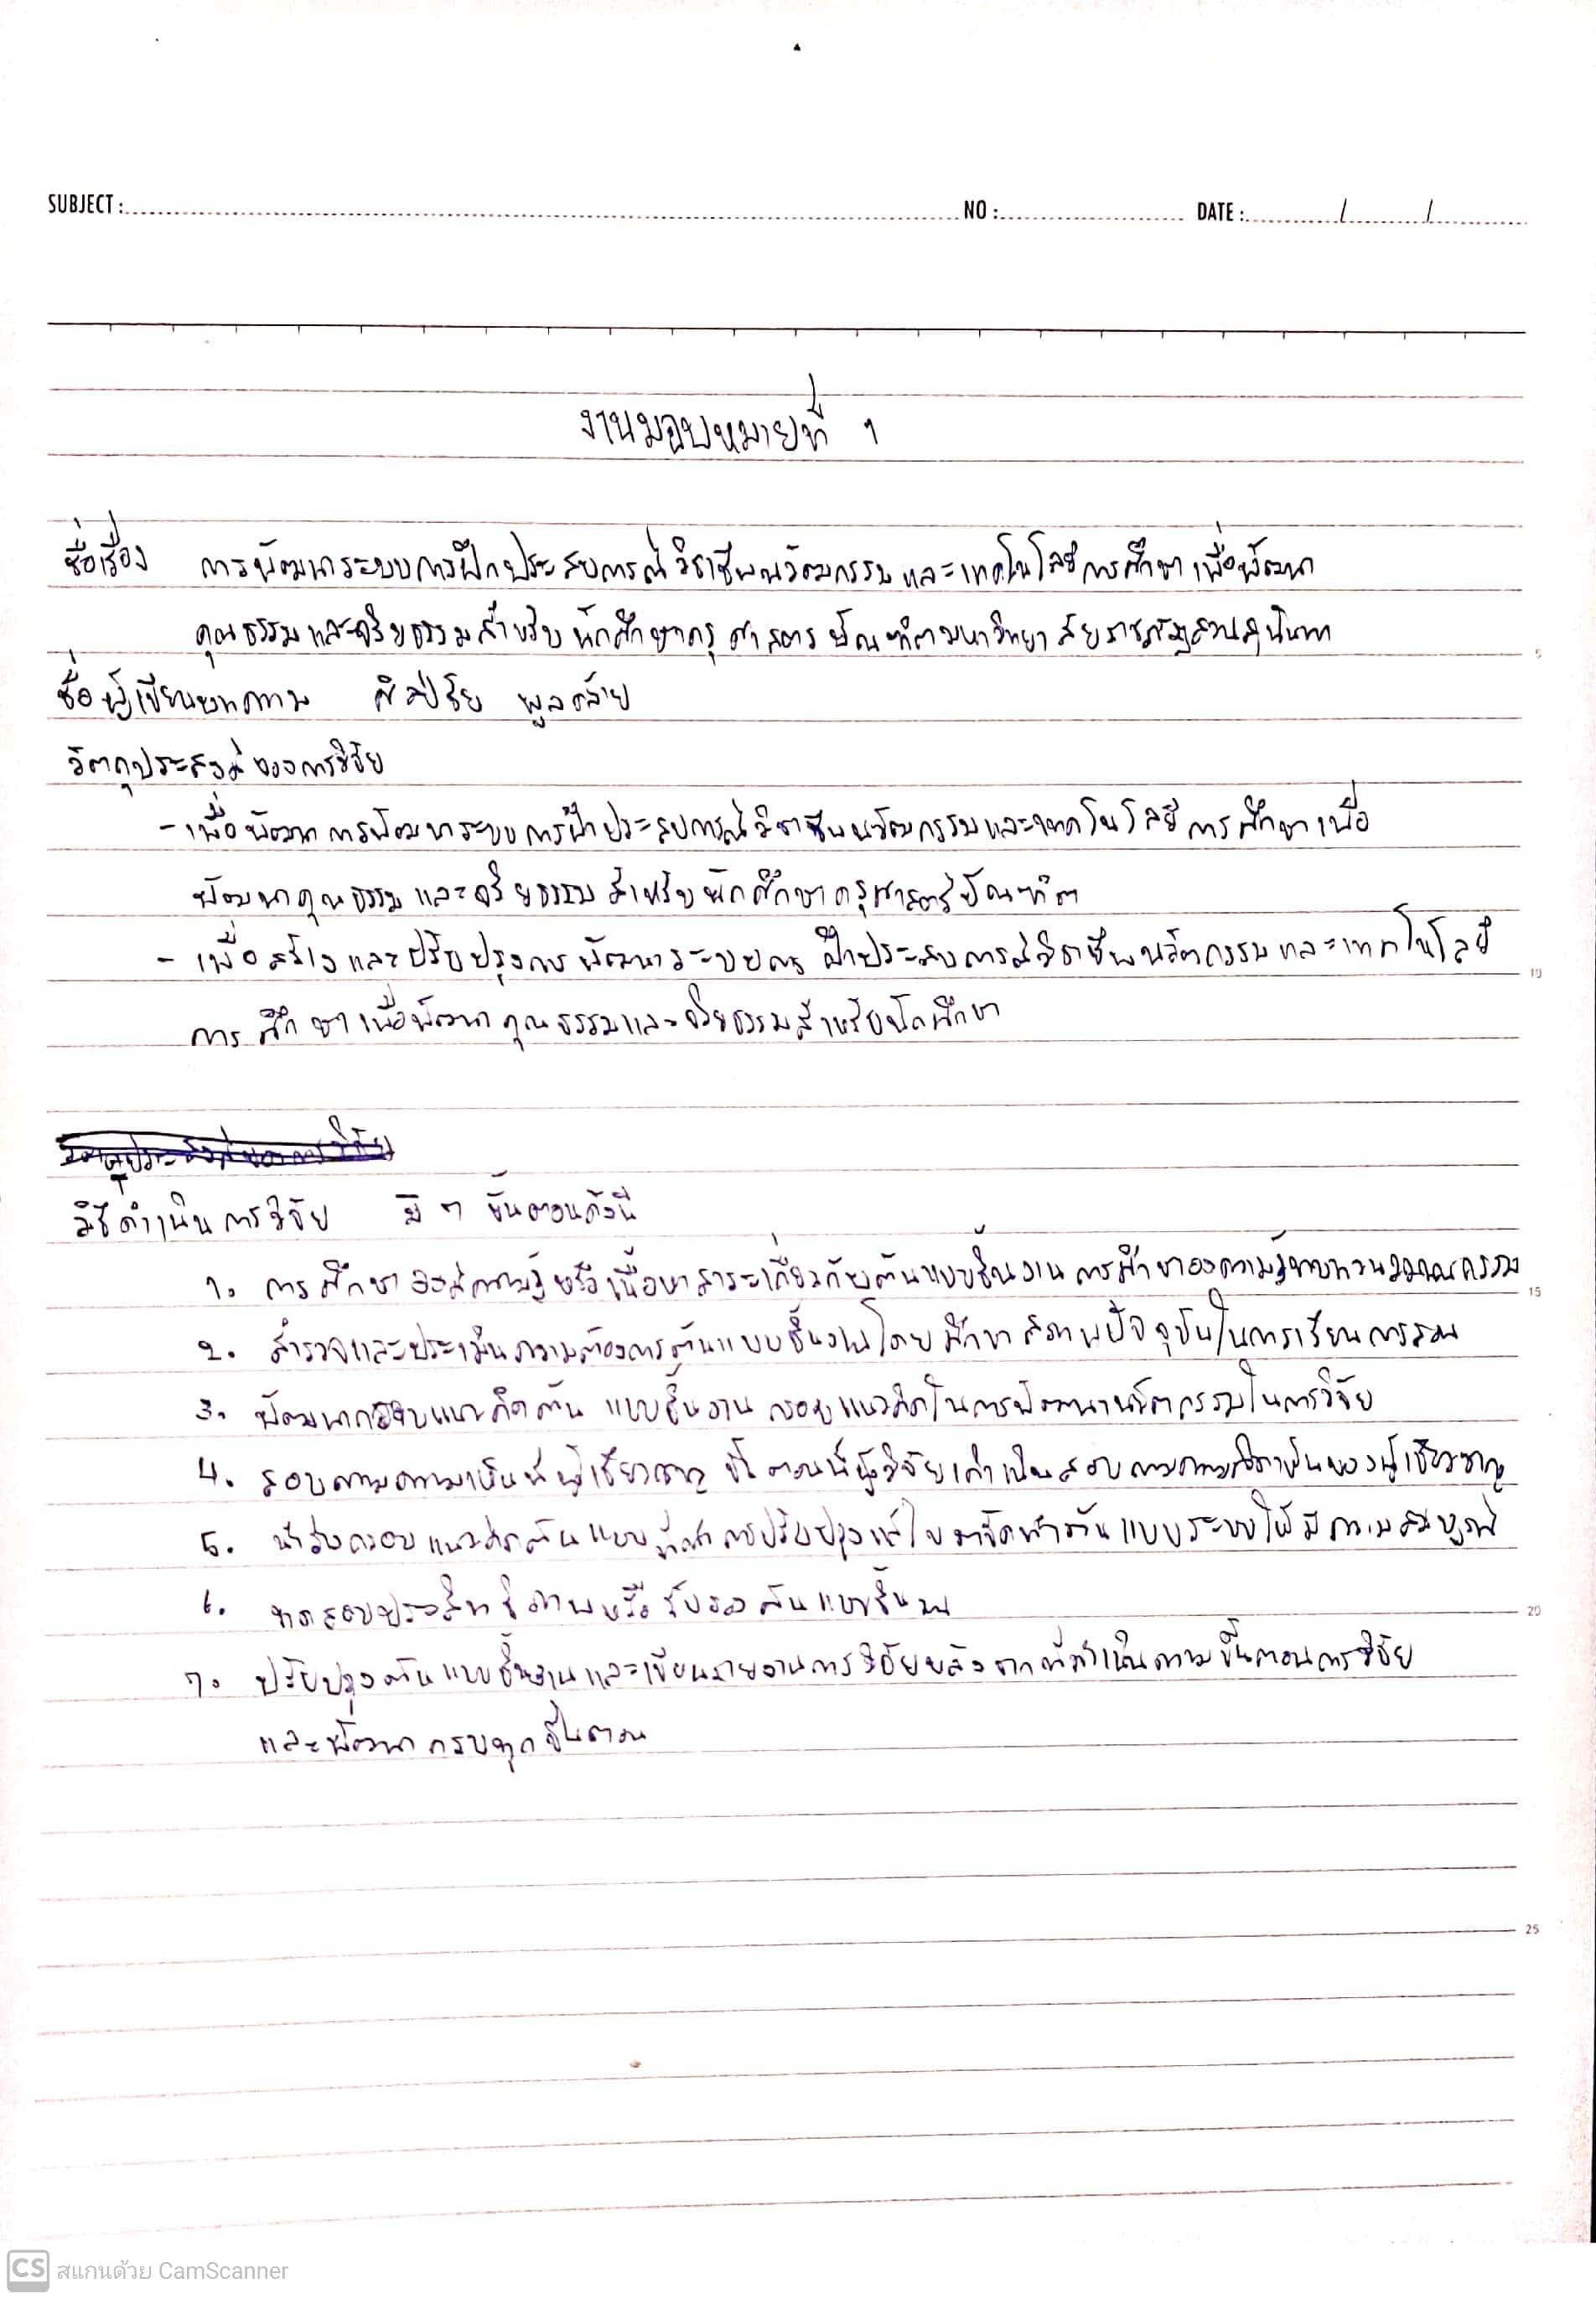 SUBJECT : NO : DATE : / /
งานมอบหมายที่ 1
ชื่อเรื่อง การพัฒนาระบบการฝึกประสบการณ์วิชาชีพนวัตกรรมและเทคโนโลยีการศึกษาเพื่อพัฒนา
คุณธรรมและจริยธรรมสำหรับนักศึกษาครุศาสตรบัณฑิตมหาวิทยาลัยราชภัฏสวนสุนันทา
5
ชื่อผู้เขียนบทความ ศิลป์ชัย พูลคล้าย
วัตถุประสงค์ของการวิจัย
- เพื่อพัฒนาการพัฒนาระบบการฝึกประสบการณ์วิชาชีพนวัตกรรมและเทคโนโลยีการศึกษาเพื่อ
พัฒนาคุณธรรมและจริยธรรมสำหรับนักศึกษาครุศาสตร์บัณฑิต
- เพื่อสร้างและปรับปรุงการพัฒนาระบบการฝึกประสบการณ์วิชาชีพนวัตกรรมและเทคโนโลยี
10
การศึกษาเพื่อพัฒนาคุณธรรมและจริยธรรมสำหรับนักศึกษา
วิธีดำเนินการวิจัย มี 7 ขั้นตอนดังนี้
1. การศึกษาองค์ความรู้หรือเนื้อหาสาระเกี่ยวกับต้นแบบชิ้นงาน การศึกษาองความรู้ทบทวนวรรณกรรม
15
2. สำรวจและประเมินความต้องการต้นแบบชิ้นงานโดยศึกษาสภาพปัจจุบันในการเรียนการสอน
3. พัฒนากรอบแนวคิดต้นแบบชิ้นงาน กรอบแนวคิดในการพัฒนานวัตกรรมในการวิจัย
4. สอบถามความเห็น ผู้เชี่ยวชาญ ขั้นตอนนี้ผู้วิจัยดำเนินสอบถามความคิดเห็นของผู้เชี่ยวชาญ
5. นำร่างกรอบแนวคิดต้นแบบ การปรับปรุงแก้ไขมาจัดทำต้นแบบระบบให้มีความสมบูรณ์
6. ทดสอบประสิทธิภาพหรือรับรองต้นแบบชิ้นงาน
20
7. ปรับปรุงต้นแบบชิ้นงานและเขียนรายงานการวิจัยหลังจากที่ดำเนินตามขั้นตอนการวิจัย
และพัฒนาครบทุกขั้นตอน
25
CS สแกนด้วย CamScanner